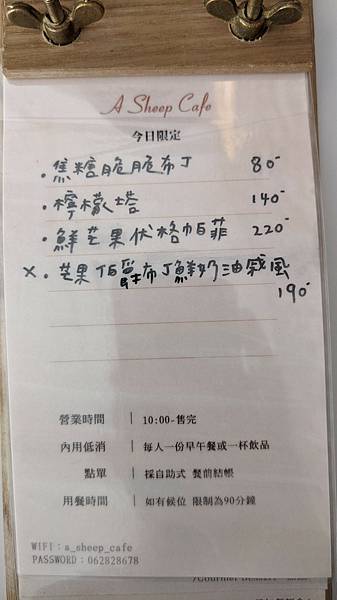 A Sheep Cafe
今日限定
·焦糖脆脆布丁 80-
·檸檬塔 140-
·鮮芒果伏格帕菲 220-
×·芒果伯爵布丁鮮奶油戚風
190-
營業時間 | 10:00-售完
內用低消 | 每人一份早午餐或一杯飲品
點單 | 採自助式 餐前結帳
用餐時間 | 如有候位 限制為90分鐘
WIFI：a_sheep_cafe
PASSWORD：062828678